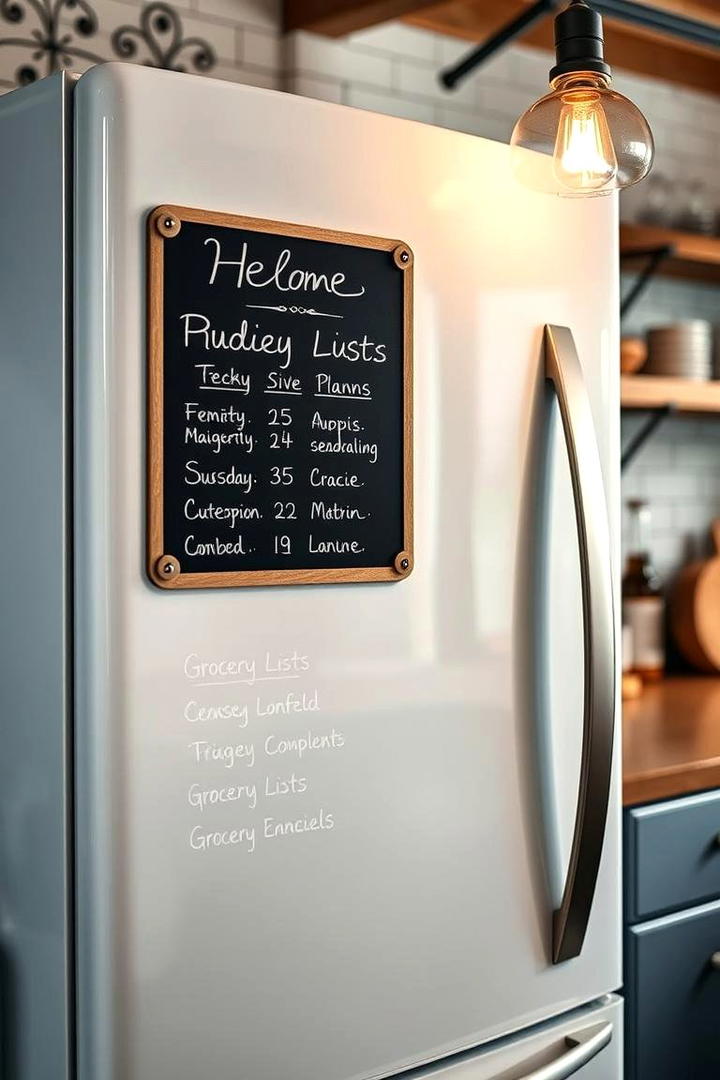 Helome
Rudiey Lists
Tecky Sive Planns
Femity. 25 Auppis.
Maigerity. 24 sendcaling
Sussday. 35 Cracie.
Cutespion. 22 Matrin.
Combed.. 19 Lanune.
Grocery Lists
Cemsey Lonfeld
Triagey Complents
Grocery Lists
Grocery Ennciels